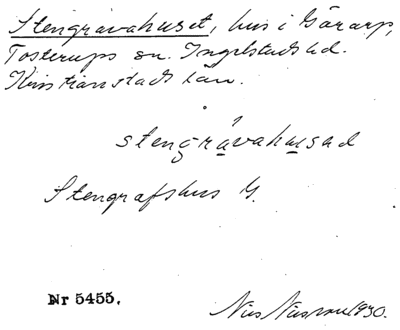 Stengravahuset, hus i Gärarp,
Tosterups sn. Ingelstads hd.
Kristianstads län.
stengrávahusad
Stengrafshus G.
Nr 5455.
Nils Nilsson 1930.